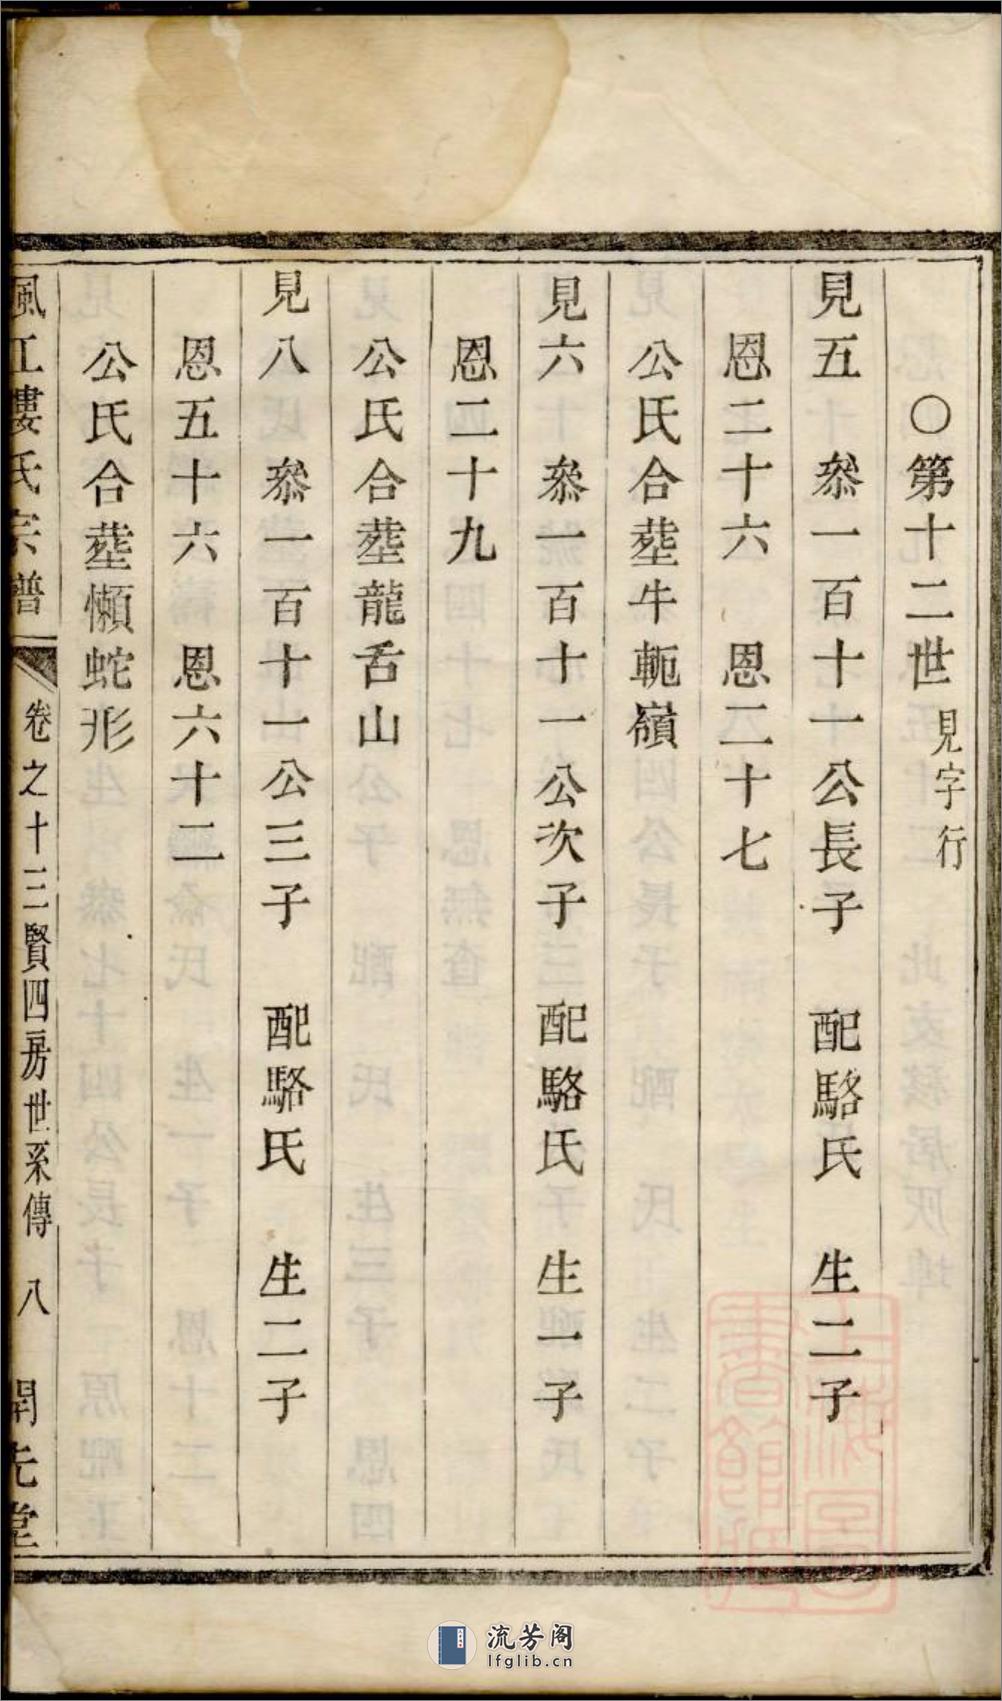 ○第十二世 見字行
見五 叅一百十一公長子 配駱氏 生二子
恩二十六 恩二十七
公氏合塟牛軛嶺
見六 叅一百十一公次子 配駱氏 生一子
恩二十九
公氏合塟龍舌山
見八 叅一百十一公三子 配駱氏 生二子
恩五十六 恩六十二
公氏合塟懶蛇形
楓江婁氏宗譜 卷之十三賢四房世系傳 八 開先堂
上海圖書館藏
流芳阁
lfglib.cn